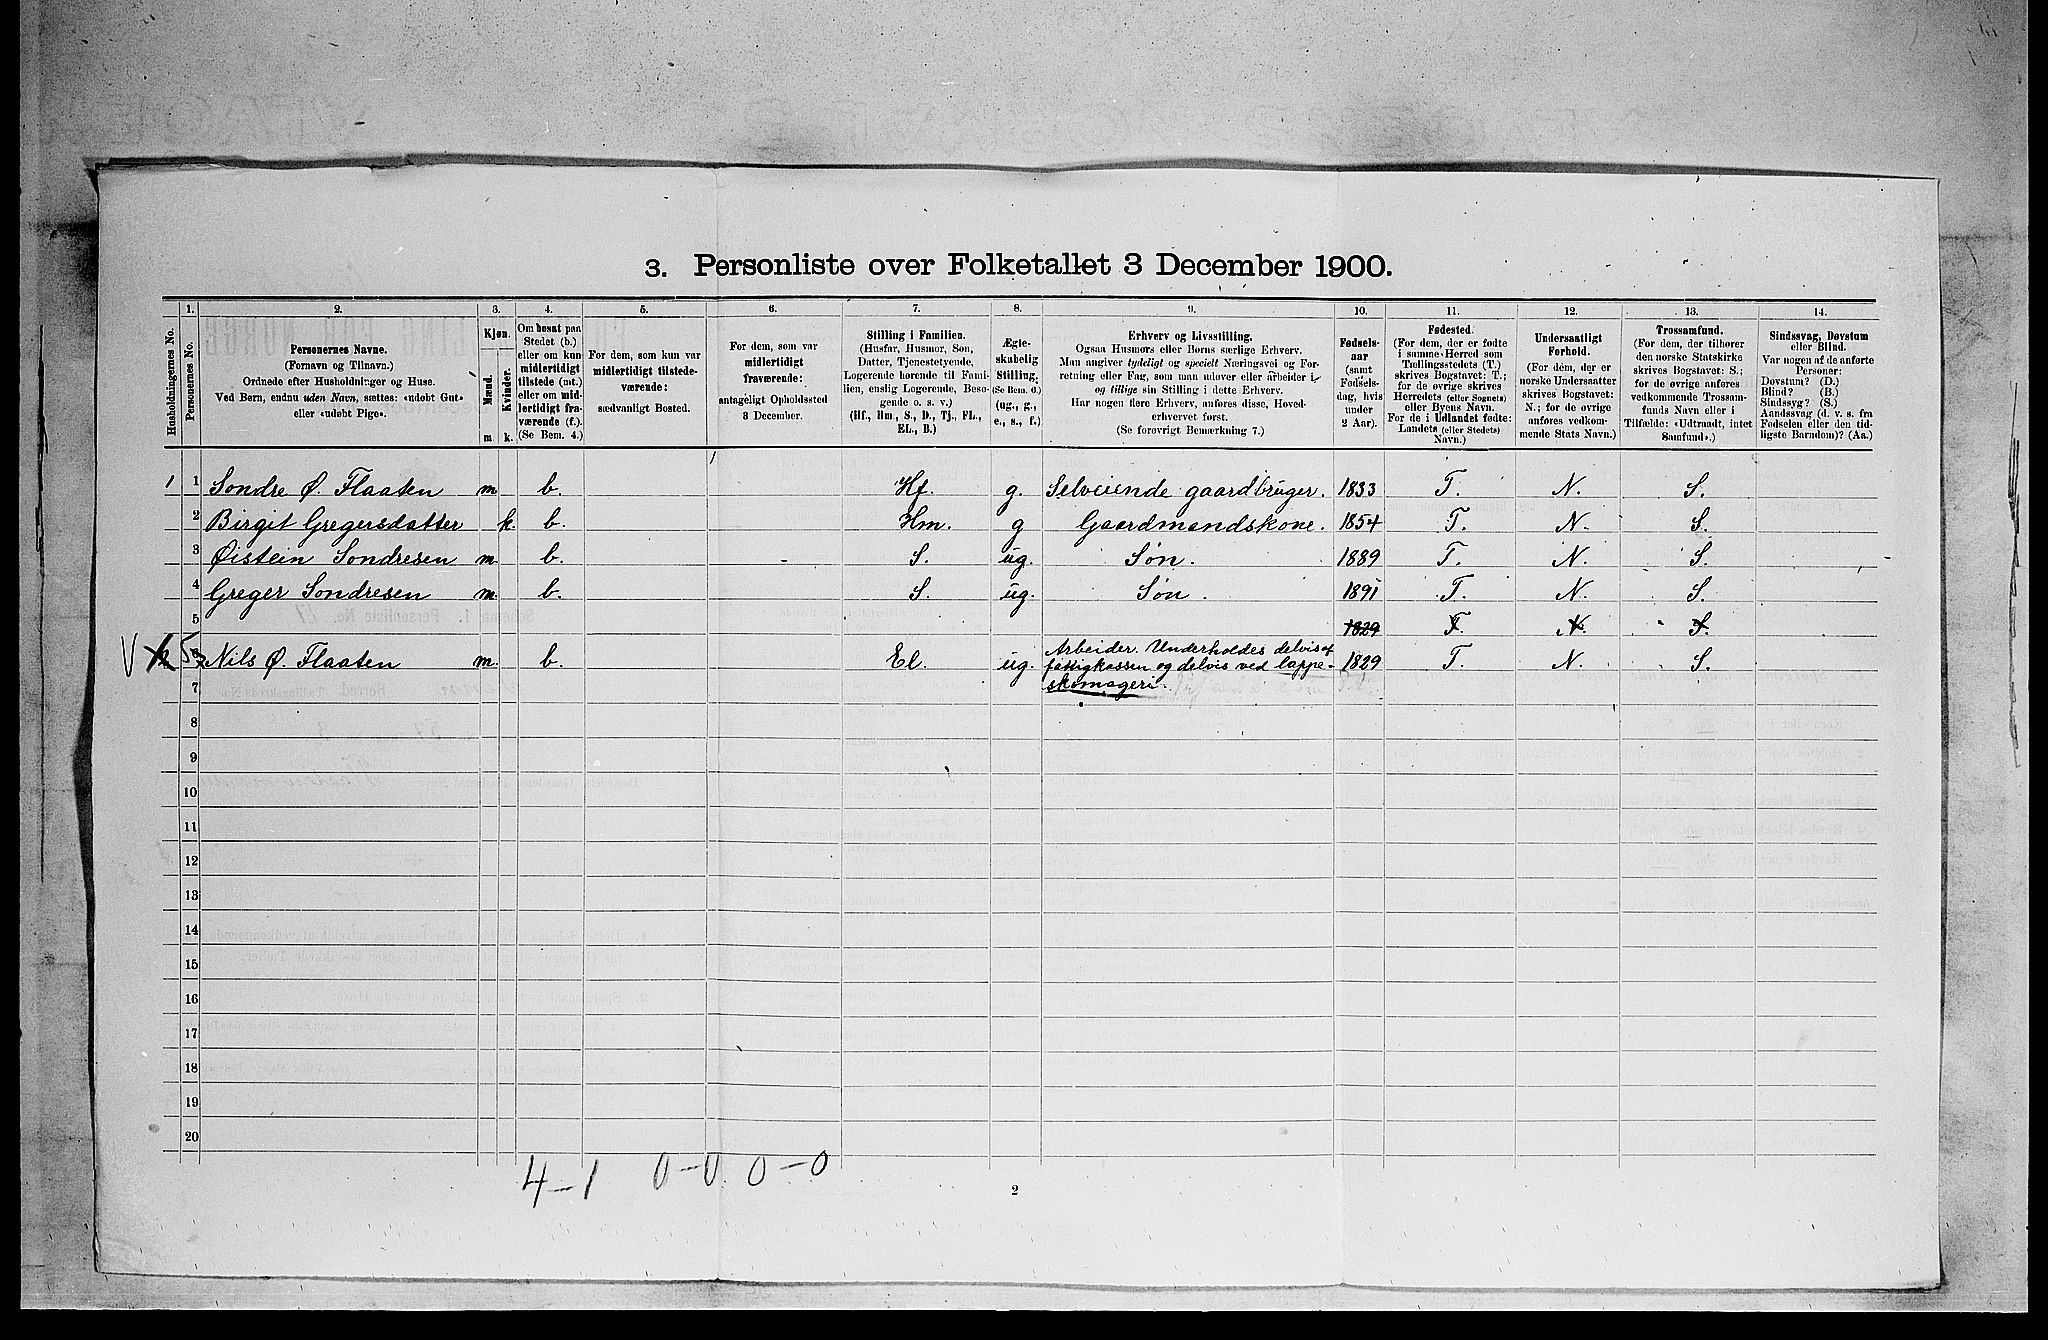 3. Personliste over Folketallet 3 December 1900.
1. 2. 3. 4. 5. 6. 7. 8. 9. 10. 11. 12. 13. 14.
Husholdningernes No.
Personernes No.
Personernes Navne.
(Fornavn og Tilnavn.)
Ordnede efter Husholdninger og Huse.
Ved Børn, endnu uden Navn, sættes: «udøbt Gut»
eller «udøbt Pige».
Kjøn.
Mænd.
Kvinder.
m. k.
Om bosat paa
Stedet (b.)
eller om kun
midlertidigt
tilstede (mt.)
eller om mid-
lertidigt fra-
værende (f.).
(Se Bem. 4.)
For dem, som kun var
midlertidigt tilstede-
værende:
sædvanligt Bosted.
For dem, som var
midlertidigt
fraværende:
antageligt Opholdssted
3 December.
Stilling i Familien.
(Husfar, Husmor, Søn,
Datter, Tjenestetyende,
Logerende hørende til Fami-
lien, enslig Logerende, Besø-
gende o. s. v.)
(Hf., Hm., S., D., Tj., FL.,
EL., B.)
Ægte-
skabelig
Stilling.
(Se Bem. 6.)
(ug., g.,
e., s., f.)
Erhverv og Livsstilling.
Ogsaa Husmors eller Børns særlige Erhverv.
Man angiver tydeligt og specielt Næringsvei og For-
retning eller Fag, som man udøver eller arbeider i,
og tillige sin Stilling i dette Erhverv.
Har nogen flere Erhverv, anføres disse, Hoved-
erhvervet først.
(Se forøvrigt Bemærkning 7.)
Fødsels-
aar
(samt
Fødsels-
dag, hvis
under
2 Aar).
Fødested.
(For dem, der er fødte
i samme Herred som
Tællingsstedets (T.)
skrives Bogstavet: T.;
for de øvrige skrives
Herredets (eller Sognets)
eller Byens Navn.
For de i Udlandet fødte:
Landets (eller Stedets)
Navn.)
Undersaatligt
Forhold.
(For dem, der er
norske Undersaatter
skrives Bogstavet:
N.; for de øvrige
anføres vedkom-
mende Stats Navn.)
Trossamfund.
(For dem, der tilhører
den norske Statskirke
skrives Bogstavet: S.;
for de øvrige anføres
vedkommende Trossam-
funds Navn eller i
Tilfælde: «Udtraadt, intet
Samfund».)
Sindssvag, Døvstum
eller Blind.
Var nogen af de anførte
Personer:
Døvstum? (D.)
Blind? (B.)
Sindssyg? (S.)
Aandssvag (d. v. s. fra
Fødselen eller den tid-
ligste Barndom)? (Aa.)
1 1 Sondre Ø. Flaaten m. b. Hf. g. Selveiende gaardbruger. 1833 T. N. S.
2 Birgit Gregersdatter k. b. Hm. g Gaardmandskone. 1854 T. N. S.
3 Øistein Sondresen m. b. S. ug. Søn. 1889 T. N. S.
4 Greger Sondresen m. b. S. ug. Søn. 1891 T. N. S.
5 1829 T. N. S.
V 5 Nils Ø. Flaaten m. b. El. ug. Arbeider. Underholdes delvis af
fattigkassen og delvis ved lappe-
skomageri. 1829 T. N. S.
7
8
9
10
11
12
13
14
15
16
17
18
19
20
4-1 0-0 0-0
2